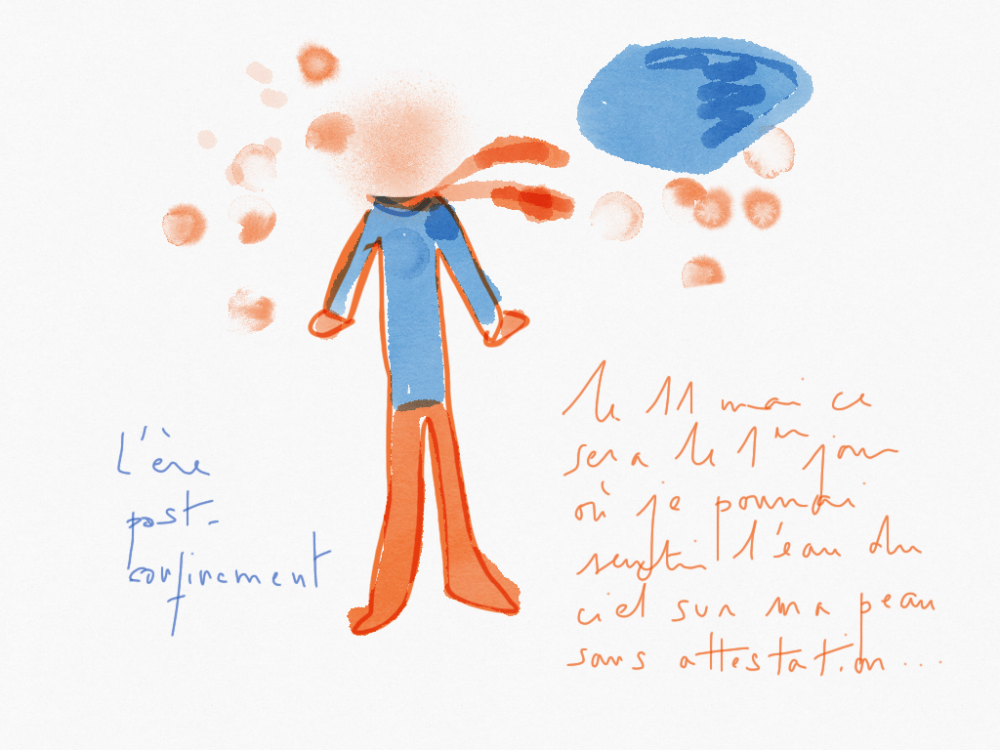 L'ère
post-
confinement
le 11 mai ce
sera le 1er jour
où je pourrai
sentir l'eau du
ciel sur ma peau
sans attestation...